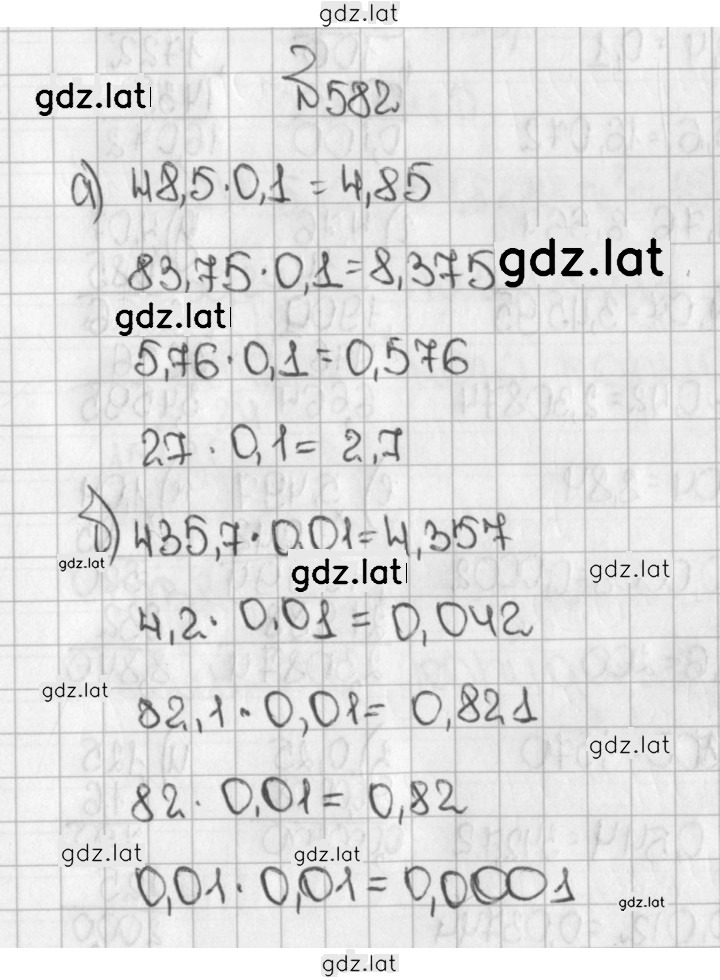 gdz.lat
№582
gdz.lat
а) 48,5·0,1=4,85
83,75·0,1=8,375
gdz.lat
gdz.lat
5,76·0,1=0,576
27·0,1=2,7
б) 435,7·0,01=4,357
gdz.lat
gdz.lat
gdz.lat
4,2·0,01=0,042
gdz.lat
82,1·0,01=0,821
gdz.lat
82·0,01=0,82
gdz.lat
gdz.lat
0,01·0,01=0,0001
gdz.lat
gdz.lat